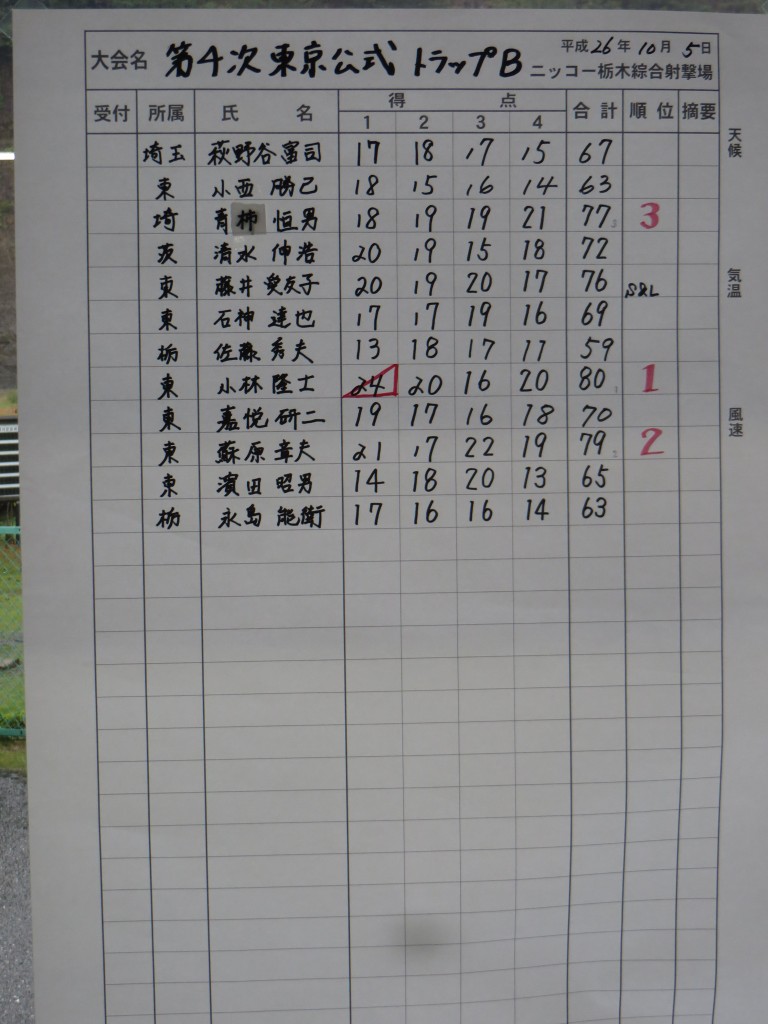 大会名 第4次東京公式 トラップB 平成26年10月5日
ニッコー栃木綜合射撃場
受付 所属 氏名 得点 合計 順位 摘要
1 2 3 4
天候
気温
風速
埼玉 萩野谷富司 17 18 17 15 67
東 小西 勝己 18 15 16 14 63
埼 青柿 恒男 18 19 19 21 77 3 3
茨 清水 伸浩 20 19 15 18 72
東 藤井 愛友子 20 19 20 17 76 S&L
東 石神 達也 17 17 19 16 69
栃 佐藤 秀夫 13 18 17 11 59
東 小林 隆士 24 20 16 20 80 1 1
東 嘉悦 研二 19 17 16 18 70
東 蘇原 章夫 21 17 22 19 79 2 2
東 濱田 昭男 14 18 20 13 65
栃 永島 能衛 17 16 16 14 63